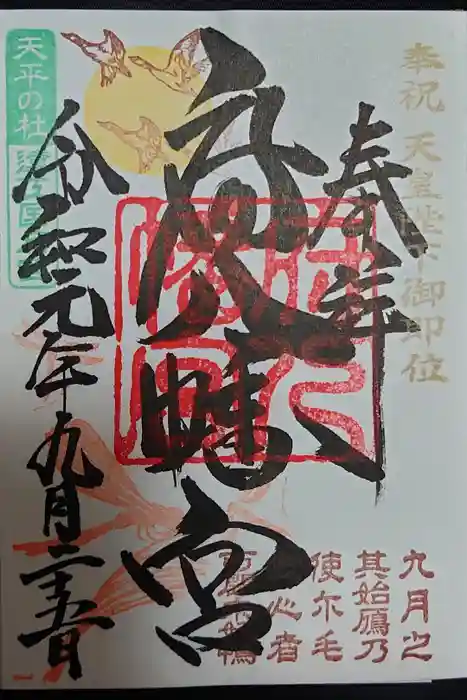 奉祝 天皇陛下御即位
奉拝
府八幡宮
令和元年九月二十五日
天平の杜
九月之
其始鴈乃
使尓毛
心者
鴨